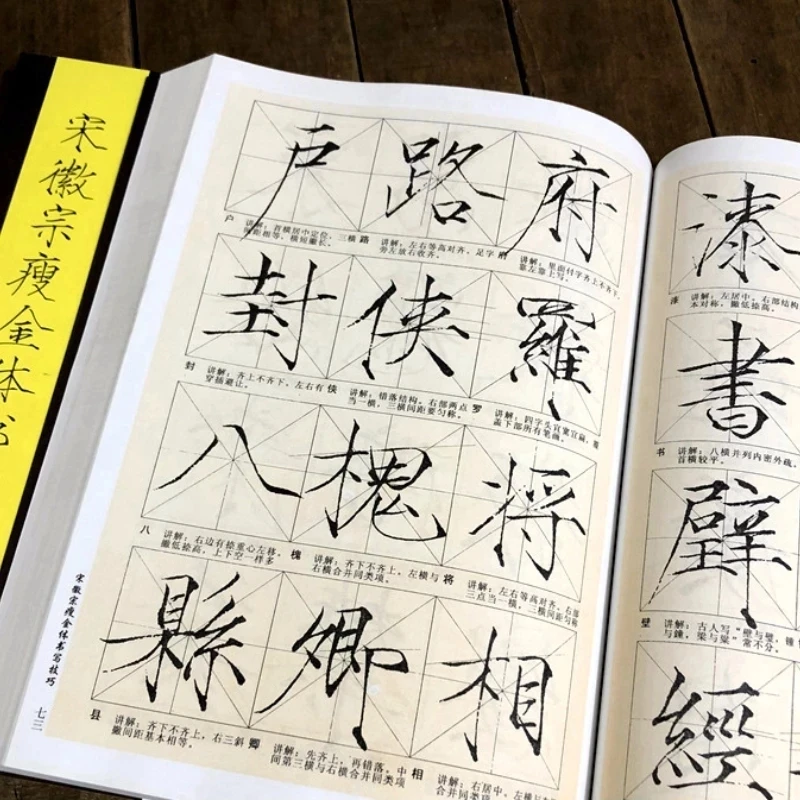 宋徽宗瘦金体书
户 路 府
户 讲解：首横居中定位，三横间距相等，横短撇长。
路 讲解：左右等高对齐，足字旁左放右收齐。
府 讲解：里面付字齐上不齐下，靠左靠上写。
封 侠 羅
封 讲解：齐上不齐下，左右有穿插避让。
侠 讲解：错落结构，右部两点当一横，三横间距要匀称。
罗 讲解：四字头宜宽宜扁，覆盖下部所有笔画。
八 槐 将
八 讲解：右边有捺重心左移，撇低捺高，上下空一样多
槐 讲解：齐下不齐上，左横与右横合并同类项。
将 讲解：左右等高对齐，右部三点当一横，二横间距匀称
縣 卿 相
县 讲解：齐下不齐上，右三斜撇间距基本相等。
卿 讲解：先齐上，再错落，中间第三横与右横合并同类项
相 讲解：右居中，左横与
合并同类项
宋徽宗瘦金体书写技巧
七三
漆
漆 讲解：左居中，右部结构
本对称，撇低捺高。
書
书 讲解：八横并列内密外疏，
首横较平。
壁
壁 讲解：古人写“壁与璧，锤
与鐘，梁与粱”常不分。
經